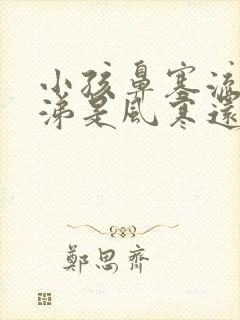 小孩鼻塞流
涕是風寒還
鄭思齊